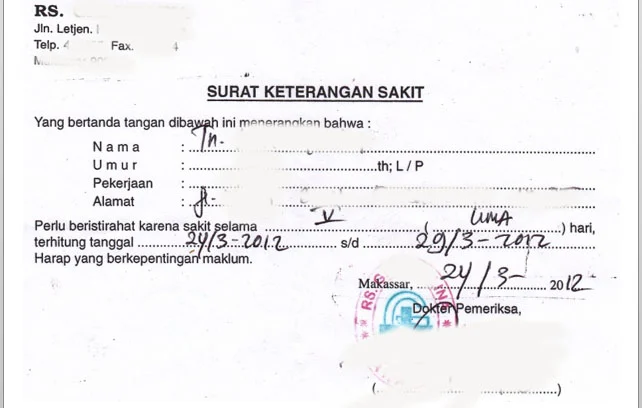 RS.
Jln. Letjen.
Telp. 4 Fax. 4
SURAT KETERANGAN SAKIT
Yang bertanda tangan dibawah ini menerangkan bahwa :
Nama : Tn.
Umur : th; L / P
Pekerjaan :
Alamat : Jl.
Perlu beristirahat karena sakit selama V ( LIMA ) hari,
terhitung tanggal 24/3-2012 s/d 29/3-2012
Harap yang berkepentingan maklum.
Makassar, 24/3- 2012
RS. S
Dokter Pemeriksa,
(                    )